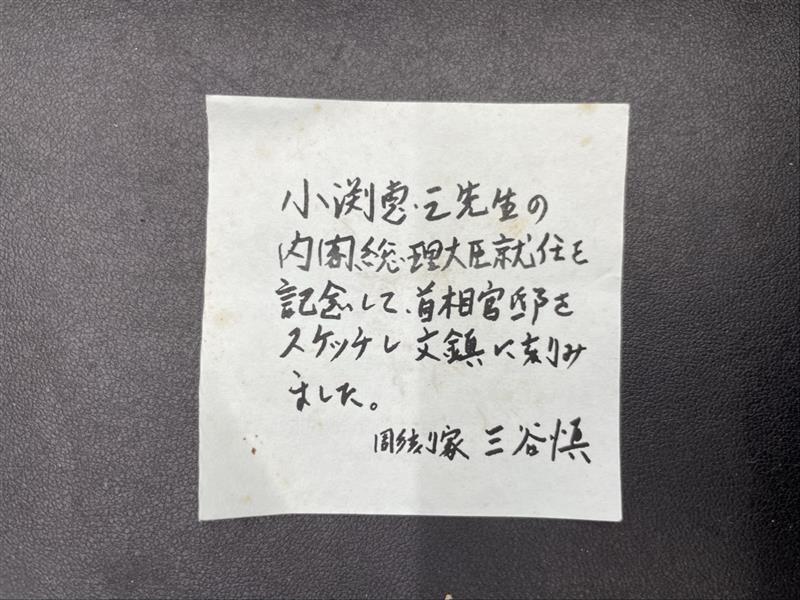 小渕恵三先生の
内閣総理大臣就任を
記念して、首相官邸を
スケッチし文鎮に刻み
ました。
彫刻家 三谷慎